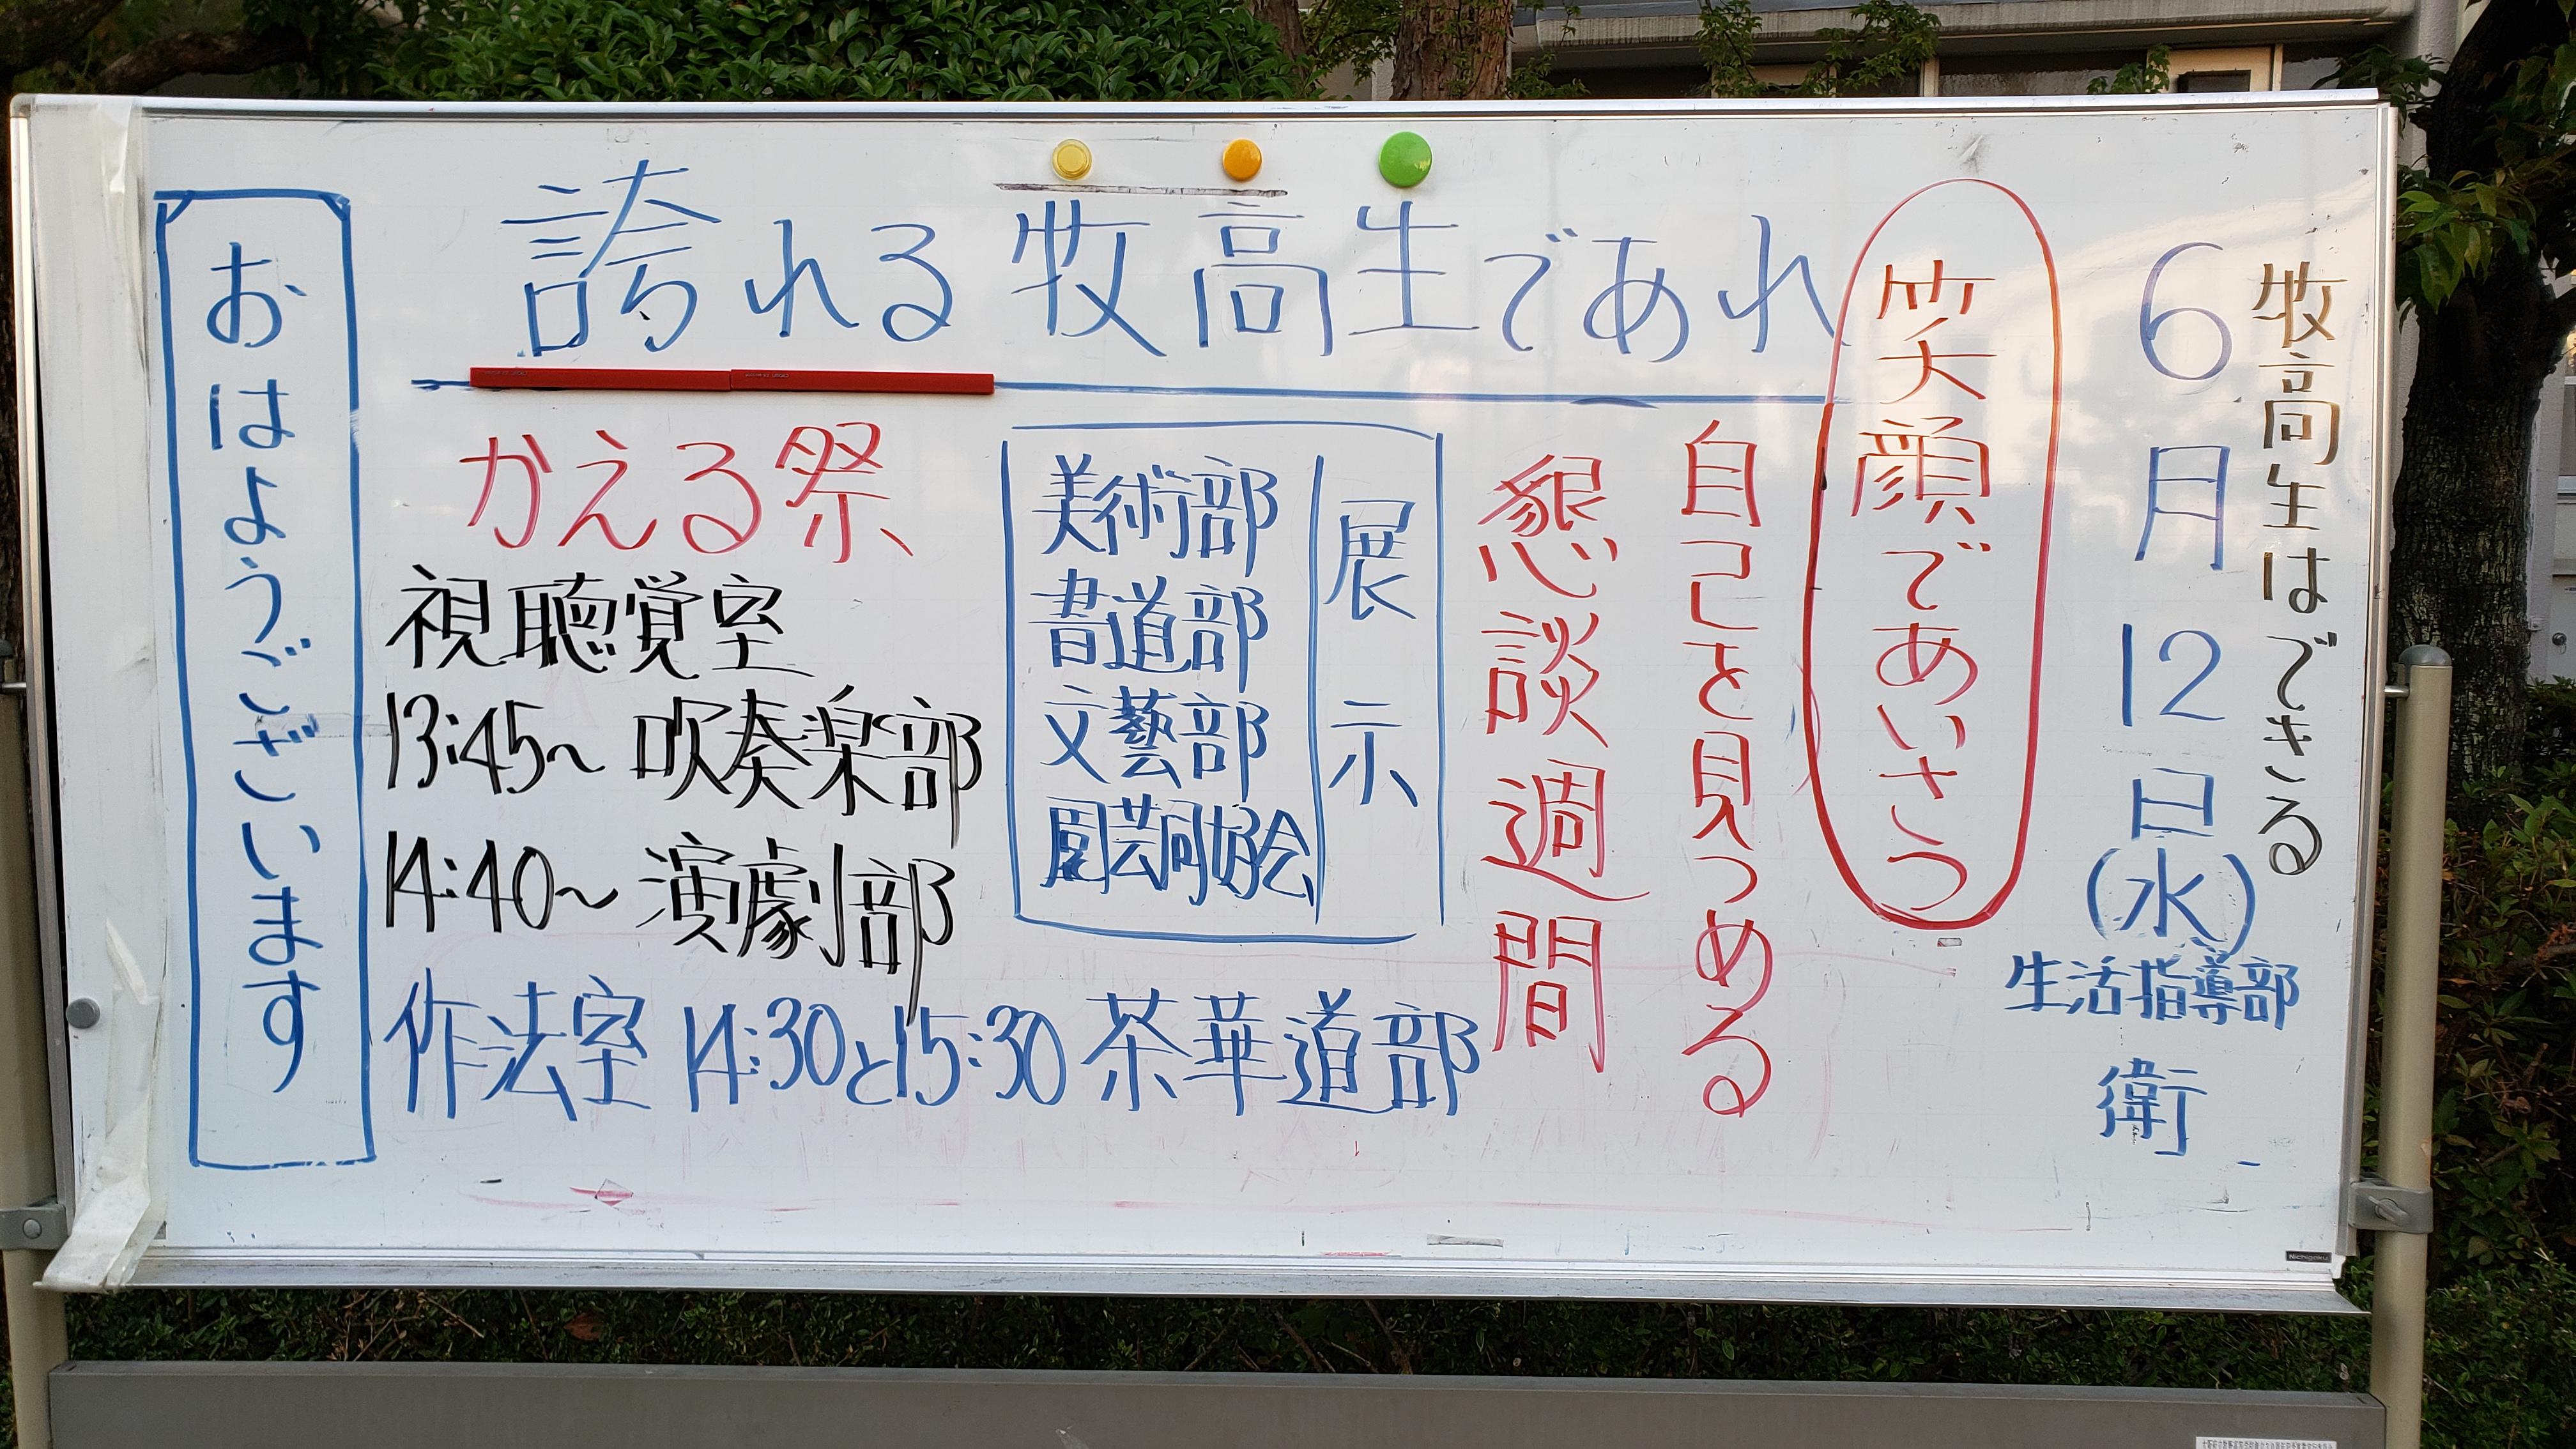 牧高生はできる
6月12日(水)
生活指導部
衛
笑顔であいさつ
誇れる牧高生であれ
自己を見つめる
懇談週間
展示
美術部
書道部
文藝部
園芸同好会
かえる祭
視聴覚室
13:45～ 吹奏楽部
14:40～ 演劇部
作法室 14:30と15:30 茶華道部
おはようございます
Nichigaku